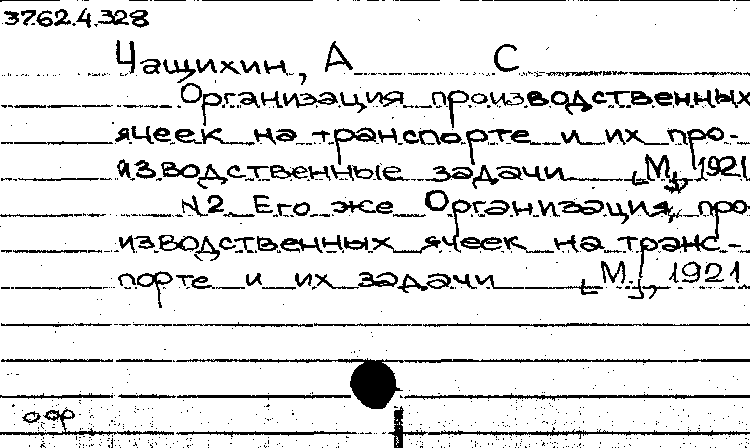 3762.4.328
Чащихин, А С
Организация производственных
ячеек на транспорте и их про-
изводственные задачи [М.], 1921
N2 Его же Организация про-
изводственных ячеек на транс-
порте и их задачи [М.], 1921